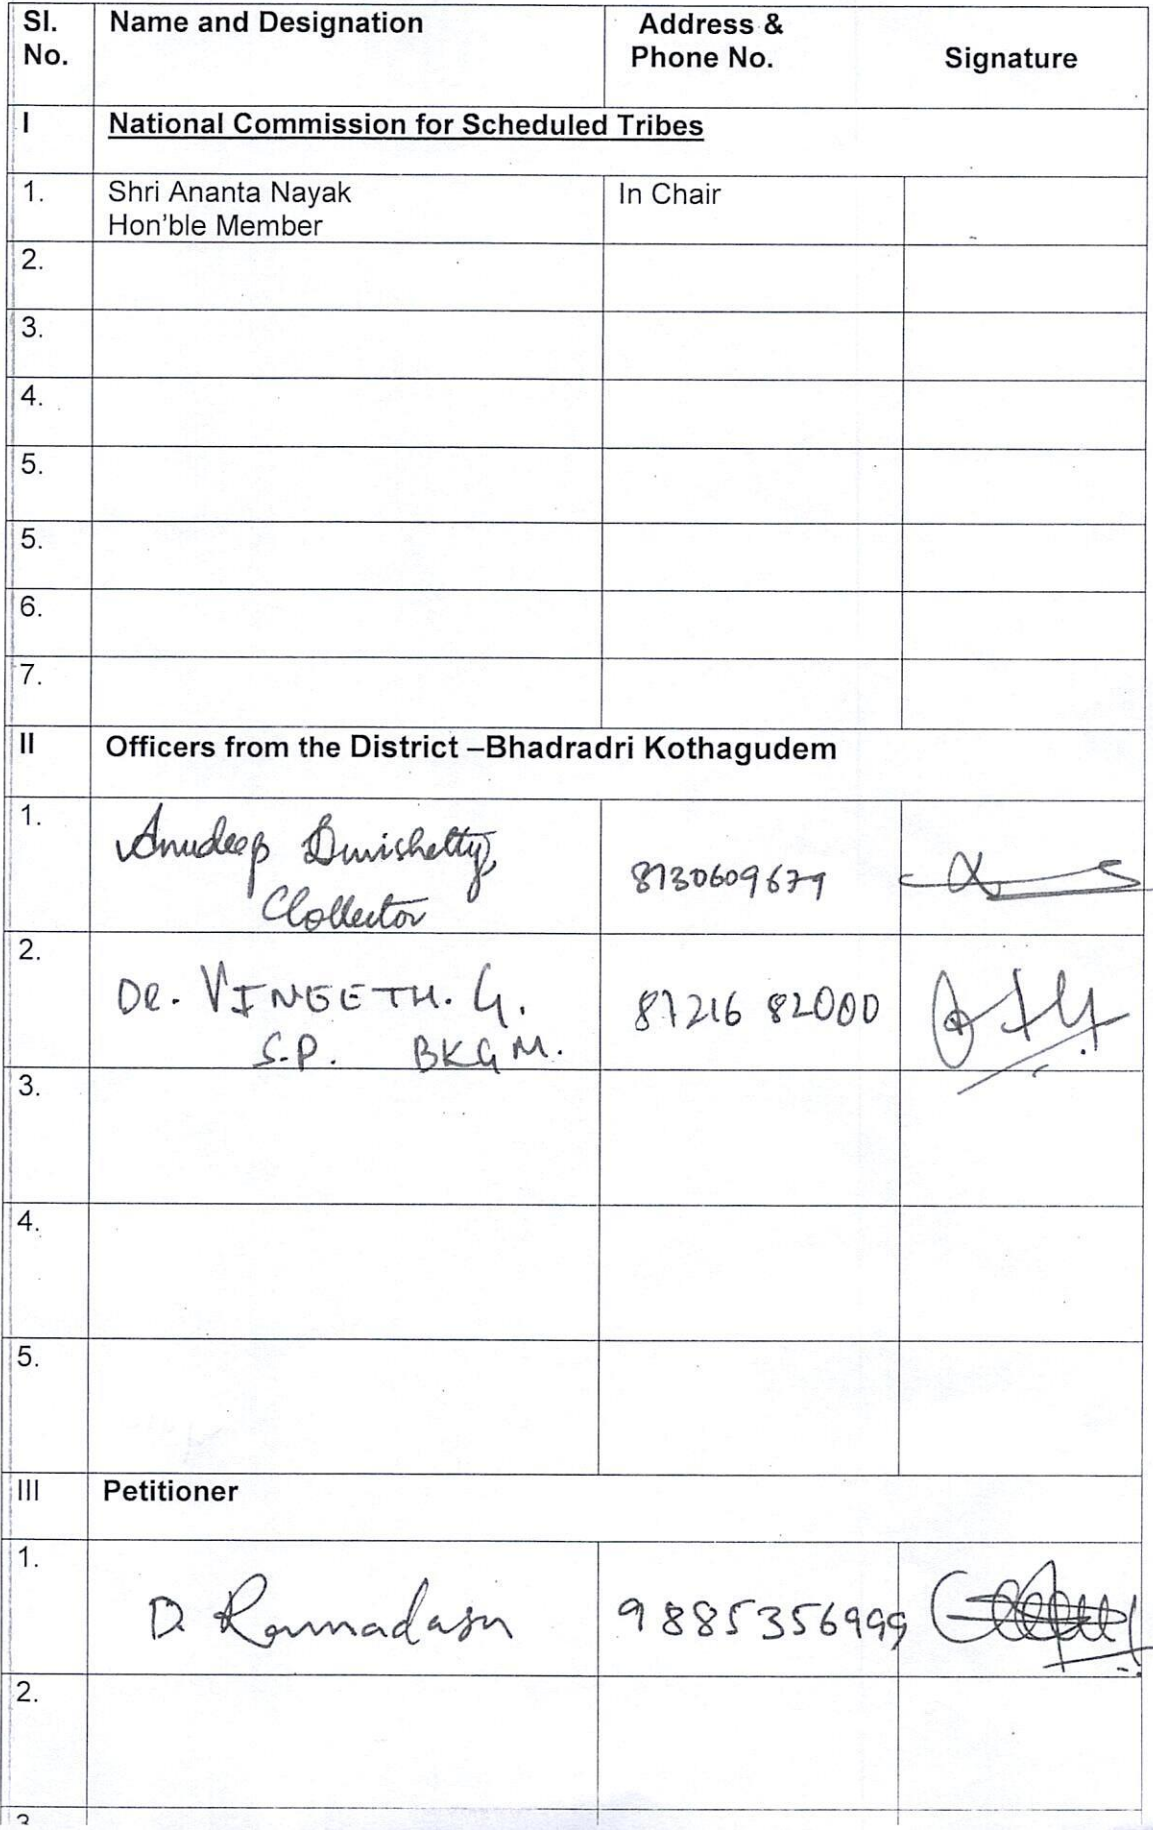 Sl. No. Name and Designation Address & Phone No. Signature
I National Commission for Scheduled Tribes
1. Shri Ananta Nayak In Chair
Hon'ble Member
2.
3.
4.
5.
5.
6.
7.
II Officers from the District –Bhadradri Kothagudem
1. Anudeep Durishetty, 8130609679
Collector
2. DR. VINEETH. G. 87216 82000
S.P. BKGM.
3.
4.
5.
III Petitioner
1. D. Ramadasu 9885356999
2.
3